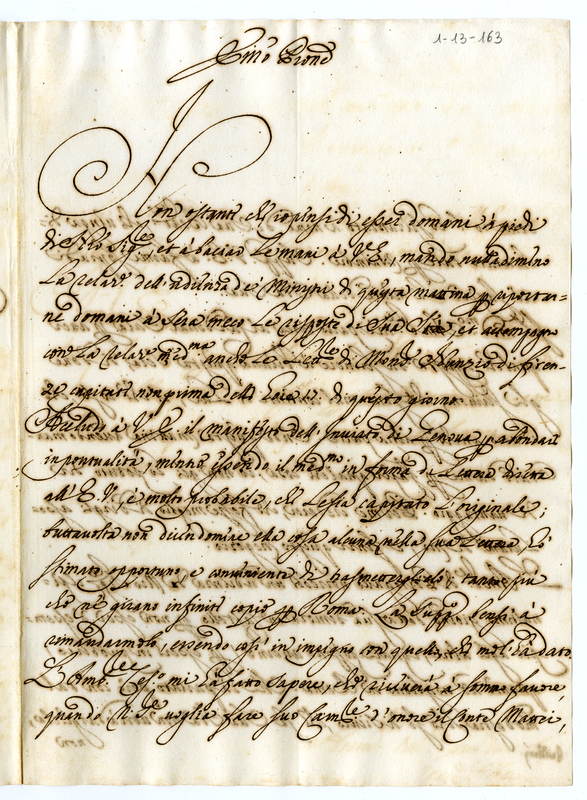 1-13-163
Em̃o Pron̄e
Non ostante che io pensi di esser domani à piedi
di N̄ro Sig.re, et à baciar le mani à V. E., mando nulladimeno
la relaz.e dell'udienza de' Ministri di questa mattina p riportar-
ne domani à sera meco le risposte di Sua S.tà et accompagno
con la relaz.e med.ma anche le lre di Mons.r Nunzio di Firen-
ze capitate non prima delle hore di questo giorno.
Accludo à V. E. il manifesto dell'Inviato di Genova p abondare
in pontualità, mentre essendo il med.mo in forma di lettera diretta
all'E. V., è molto probabile, che le sia capitato l'originale;
tuttavolta non dicendomene ella cosa alcuna nella sua lettera hò
stimato opportuno, e conveniente di trasmetterglielo, tanto più
che ne girano infinite copie p Roma. La supp.co bensì à
comandarmelo, essendo così in impegno con quello, che me l'hà dato.
L'Amb.re Ces.o mi hà fatto sapere, che riceverà à sommo favore,
quando N. S.re voglia fare suo Cam.re d'onore il Conte Mattei,